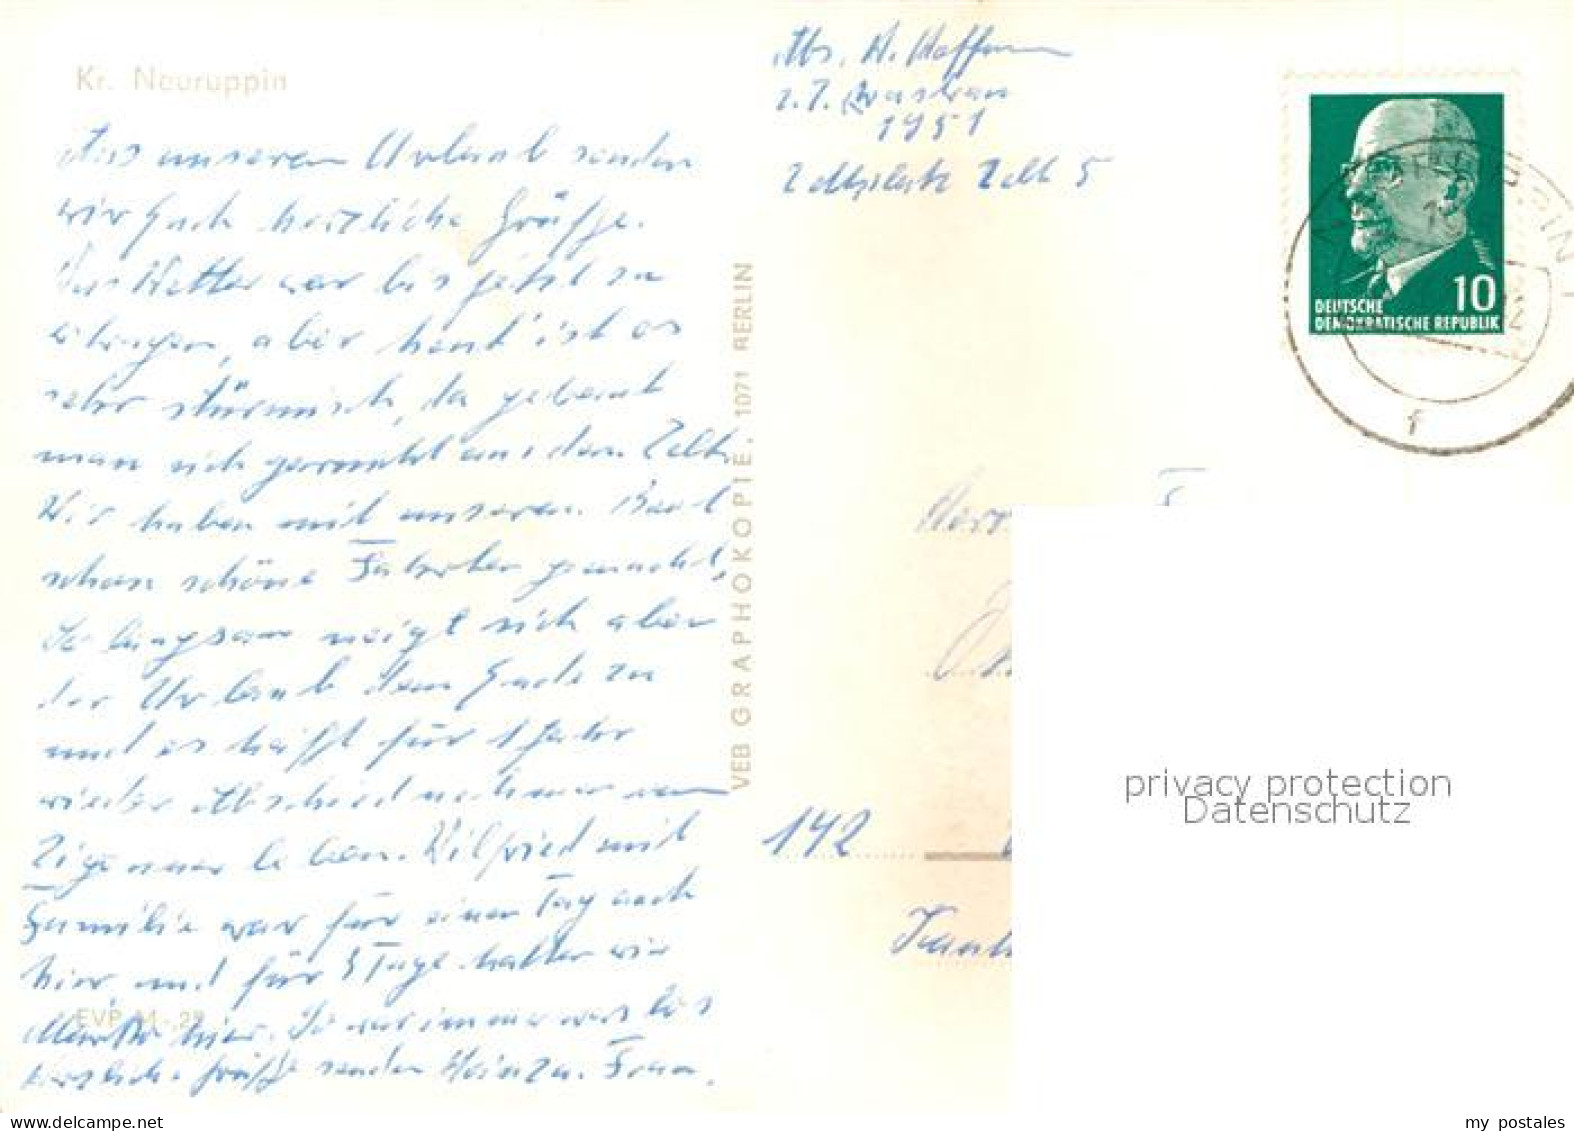 Kr. Neuruppin
Aus unserem Urlaub senden
wir Euch herzliche Grüße.
Das Wetter war bis jetzt zu
ertragen, aber heut ist es
sehr stürmisch, da getraut
man sich garnicht aus dem Zelt.
Wir haben mit unserem Boot
schon schöne Fahrten gemacht,
So langsam neigt sich aber
der Urlaub dem Ende zu
und es heißt für 1 Jahr
wieder Abschied nehmen vom
Zigeunerleben. Wilfried mit
Familie war für einen Tag auch
hier und für 5 Tage hatten wir
hier. So war immer was los
Herzliche Grüße senden Heinz u. Frau.
EVP M -,25
VEB GRAPHOKOPIE, 1071 BERLIN
Abs. H. Hoffmann
z. Z.
1951
Zeltplatz Zelt 5
10
DEUTSCHE
DEMOKRATISCHE REPUBLIK
f
142
privacy protection
Datenschutz
my postales